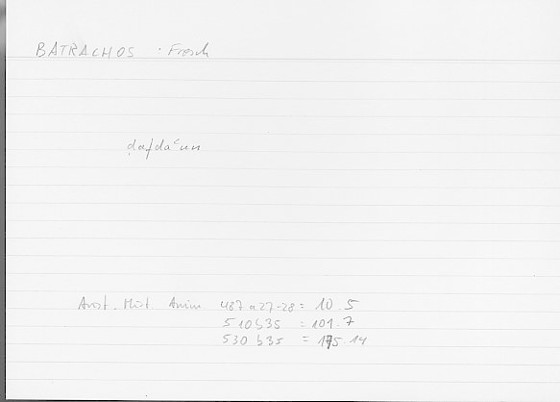 BATRACHOS · Frosch
ḍafdaʿun
Arist. Hist. Anim. 487 a 27-28 = 10.5
510 b 35 = 101.7
530 b 35 = 175.14